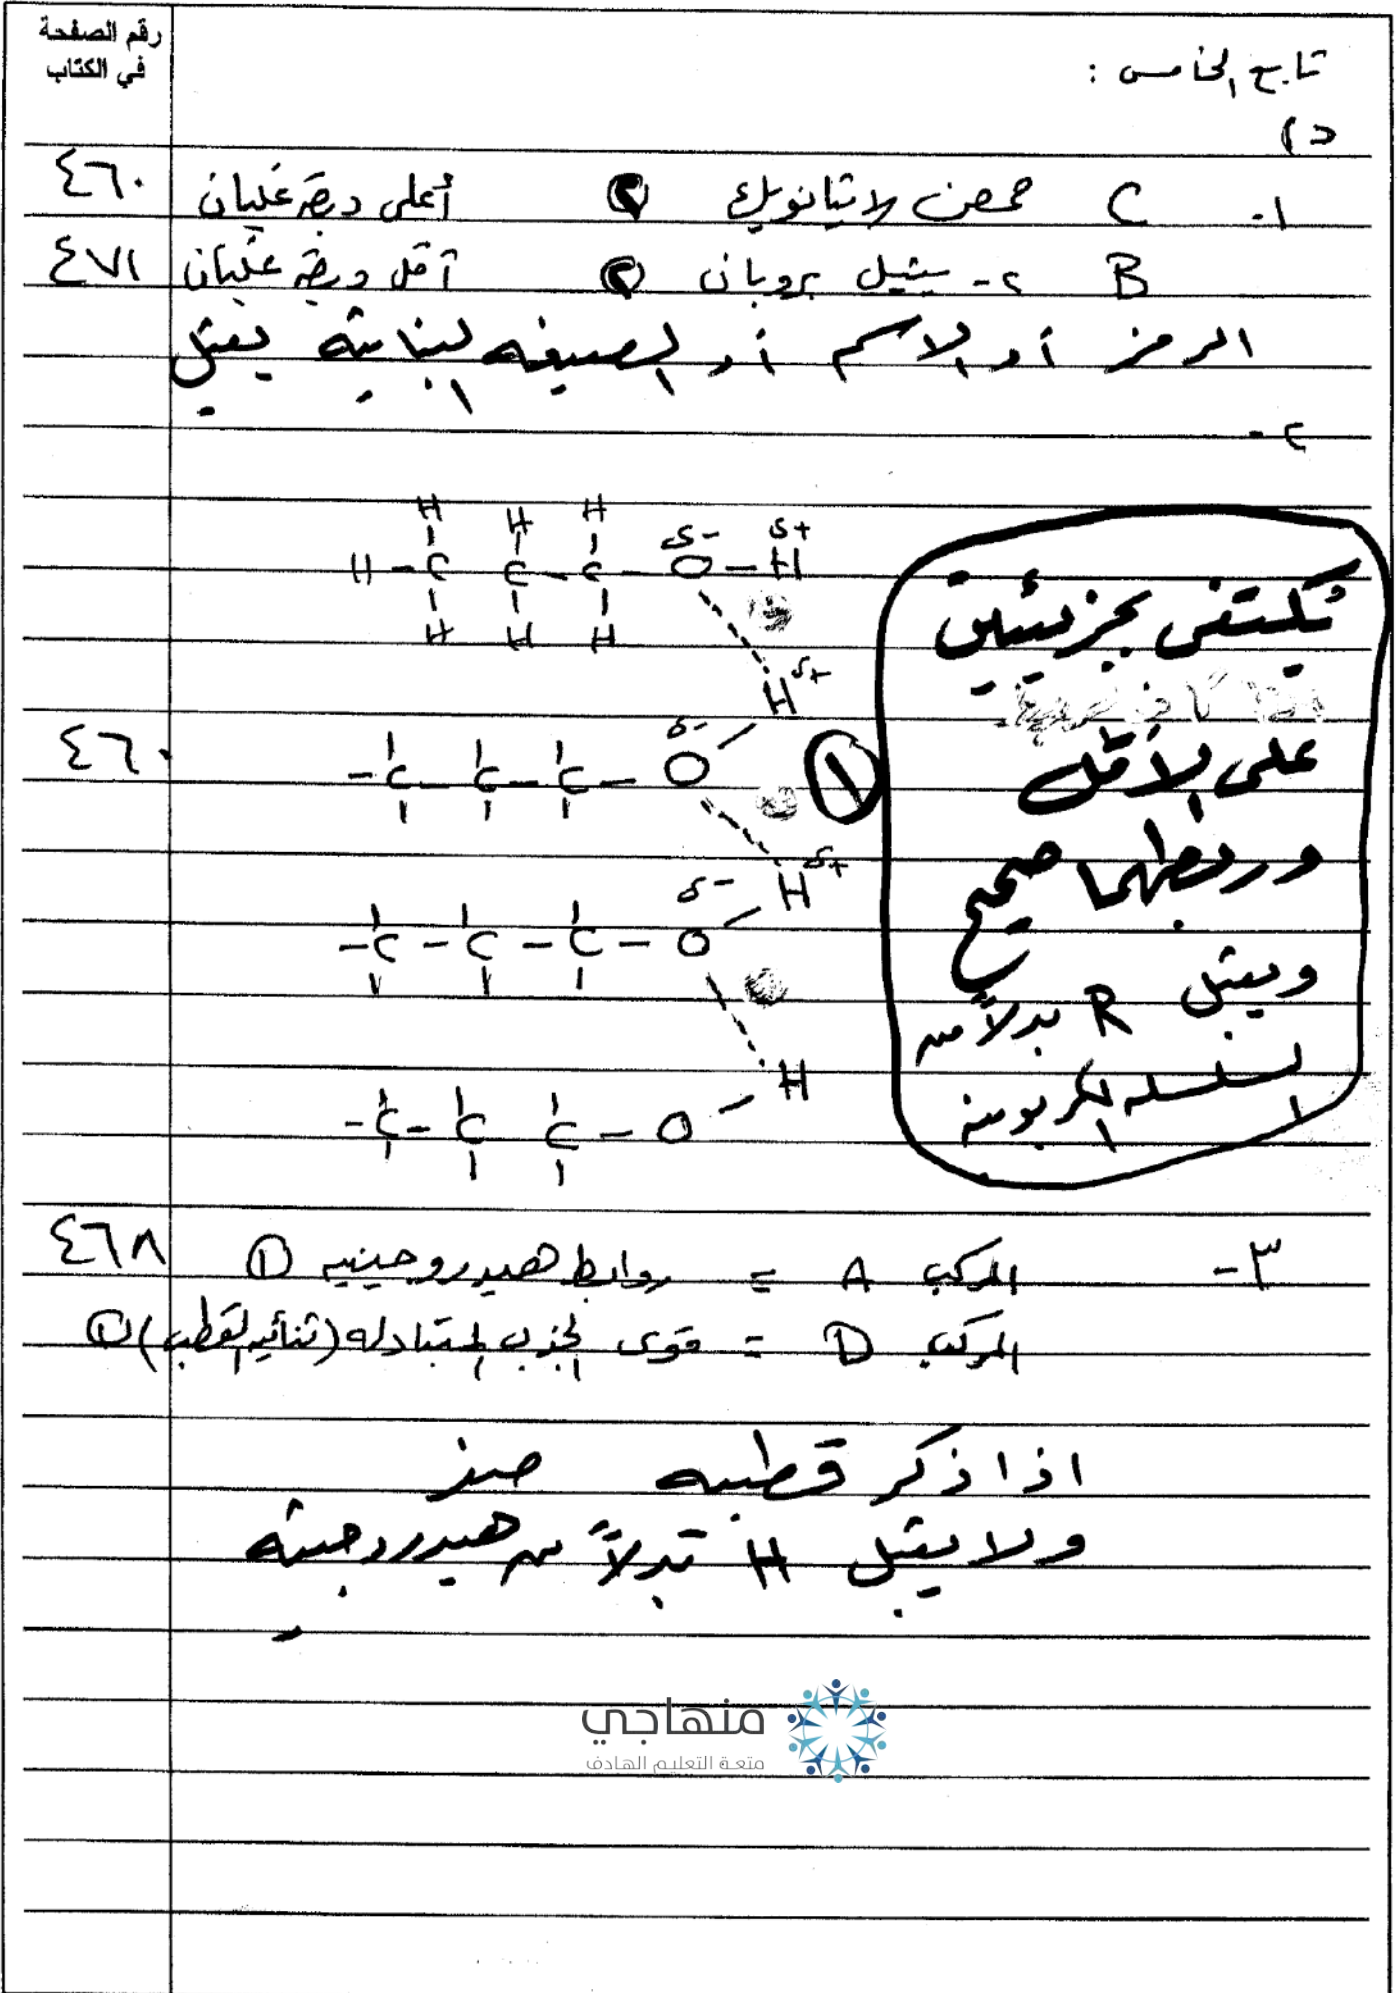 رقم الصفحة
في الكتاب
تابع الخامس :
د)
١- C حمض الايثانويك ② أعلى درجة غليان ٤٦٠
B ٢- ميثيل بروبان ② أقل درجة غليان ٤٧١
الرمز أو الاسم أو الصيغه البنائيه يقبل
٢-
H H H δ- δ+
H - C C - C - O - H
H H H
H δ+
δ-
- C - C - C - O
٤٦٠
①
H δ+
δ-
- C - C - C - O
H
- C - C C - O
يُكتفى بجزيئين
على الأقل
وربطهما صحيح
ويقبل R بدلاً من
السلسله الكربونيه
٣- المركب A = روابط هيدروجينيه ① ٤٦٨
المركب D = قوى الجذب المتبادله (ثنائيه القطب) ①
اذا ذكر قطبيه صفر
ولا يقبل H بدلاً من هيدروجينيه
منهاجي
متعة التعليم الهادف